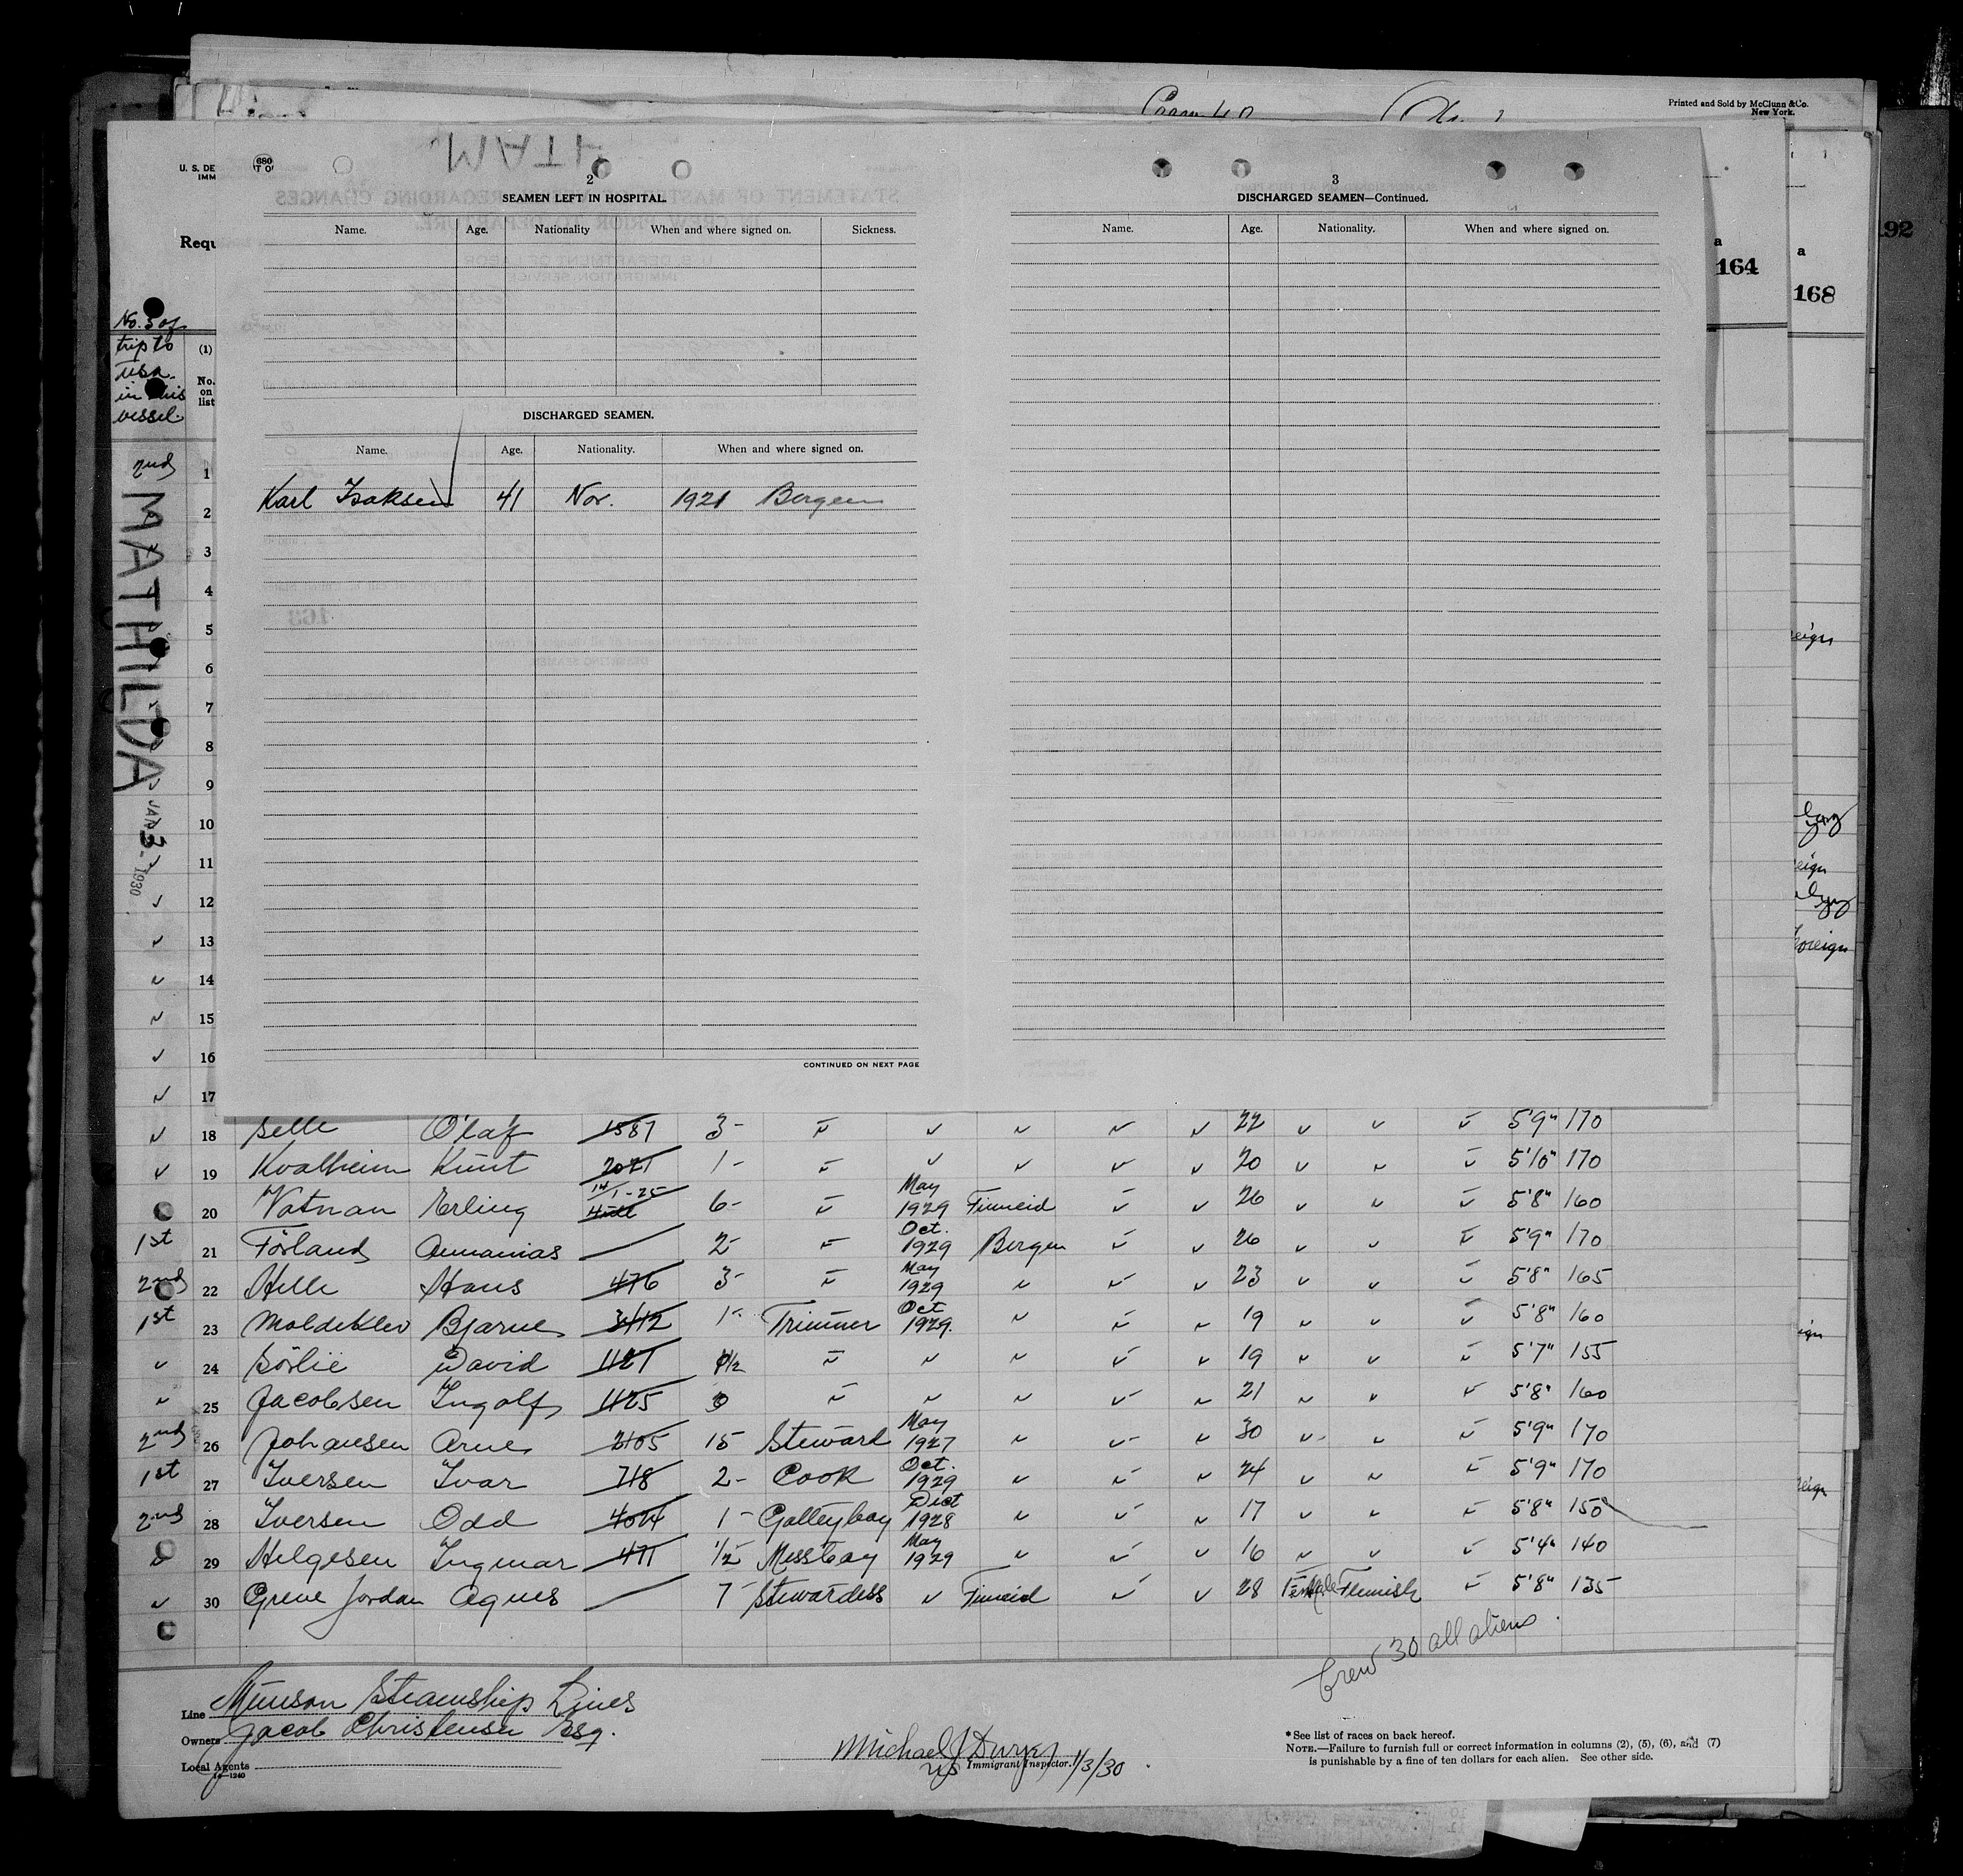 Printed and Sold by McClunn & Co.
New York.
U. S. DE
IMM
680
2
SEAMEN LEFT IN HOSPITAL.
Name. Age. Nationality When and where signed on. Sickness.
3
DISCHARGED SEAMEN—Continued.
Name. Age. Nationality. When and where signed on.
Requ
a
164
a
168
192
No. 5 of
trip to
USA
in this
vessel.
(1)
No.
on
list
DISCHARGED SEAMEN.
Name. Age. Nationality. When and where signed on.
Karl Isaksen 41 Nor. 1921 Bergen
2nd 1
2
3
4
5
6
7
8
9
10
11
12
13
14
15
16
17
MATHILDA
JAN 3 - 1930
CONTINUED ON NEXT PAGE
eign
eign
Foreign
eign
18 Selle Olaf 1587 3- 22 5'9" 170
19 Kvalheim Knut 2021 1- 20 5'10" 170
20 Vatnan Erling 14/1-25 6- May 1929 Finneid 26 5'8" 160
1st 21 Förland Annanias 2- Oct. 1929 Bergen 26 5'9" 170
2nd 22 Helle Hans 476 3- May 1929 23 5'8" 165
1st 23 Moldeklev Bjarne 3112 1- Trimmer Oct 1929. 19 5'8" 160
24 Sörlie David 1121 1/2 19 5'7" 155
25 Jacobsen Ingolf 1125 21 5'8" 160
2nd 26 Johansen Arne 2105 15 Steward May 1927 30 5'9" 170
1st 27 Iversen Ivar 718 2- Cook Oct. 1929 24 5'9" 170
2nd 28 Iversen Odd 4024 1- Galleyboy Dict 1928 17 5'8" 150
29 Helgesen Ingmar 471 1/2 Messboy May 1929 16 5'4" 140
30 Greve Jordan Agnes 7- Stewardess Finneid 28 Female Flemish 5'8" 135
Crew 30 all aliens.
Line Munson Steamship Lines
Owners Jacob Christensen Esq.
Local Agents
14—1240
Michael J Dwyer
US Immigrant Inspector. 1/3/30
* See list of races on back hereof.
NOTE.—Failure to furnish full or correct information in columns (2), (5), (6), and (7)
is punishable by a fine of ten dollars for each alien. See other side.